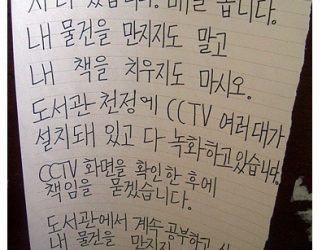 다 있습니다. 매일 옵니다.
내 물건을 만지지도 말고
내 책을 치우지도 마시오.
도서관 천정에 CCTV 여러대가
설치돼 있고 다 녹화하고있습니다.
CCTV 화면을 확인한 후에
책임을 묻겠습니다.
도서관에서 계속 공부하고
내 물건을 만지지